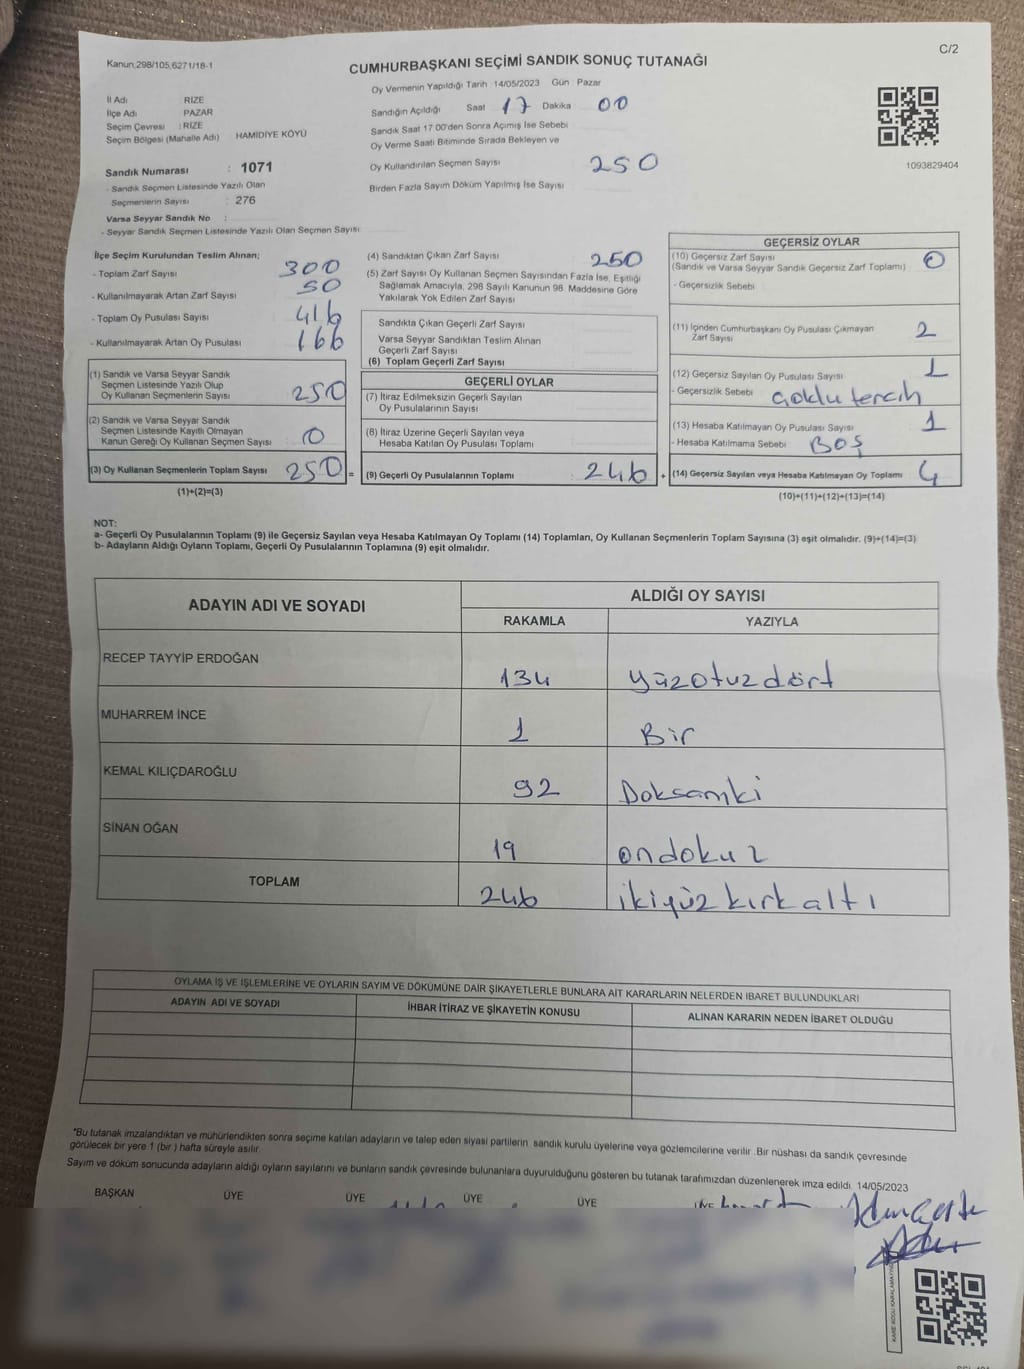 C/2
Kanun,298/105,6271/18-1
CUMHURBAŞKANI SEÇİMİ SANDIK SONUÇ TUTANAĞI
Oy Vermenin Yapıldığı Tarih : 14/05/2023 Gün : Pazar
İl Adı : RİZE
İlçe Adı : PAZAR
Seçim Çevresi : RİZE
Seçim Bölgesi (Mahalle Adı) : HAMİDİYE KÖYÜ
Sandığın Açıldığı Saat 17 Dakika 00
Sandık Saat 17:00'den Sonra Açımış İse Sebebi
Oy Verme Saati Bitiminde Sırada Bekleyen ve
Oy Kullandırılan Seçmen Sayısı 250
Birden Fazla Sayım Döküm Yapılmış İse Sayısı
1093829404
Sandık Numarası : 1071
- Sandık Seçmen Listesinde Yazılı Olan
Seçmenlerin Sayısı : 276
Varsa Seyyar Sandık No :
- Seyyar Sandık Seçmen Listesinde Yazılı Olan Seçmen Sayısı:
İlçe Seçim Kurulundan Teslim Alınan;
- Toplam Zarf Sayısı 300
- Kullanılmayarak Artan Zarf Sayısı 50
- Toplam Oy Pusulası Sayısı 416
- Kullanılmayarak Artan Oy Pusulası 166
(1) Sandık ve Varsa Seyyar Sandık
Seçmen Listesinde Yazılı Olup
Oy Kullanan Seçmenlerin Sayısı 250
(2) Sandık ve Varsa Seyyar Sandık
Seçmen Listesinde Kayıtlı Olmayan
Kanun Gereği Oy Kullanan Seçmen Sayısı 0
(3) Oy Kullanan Seçmenlerin Toplam Sayısı 250 =
(1)+(2)=(3)
(4) Sandıktan Çıkan Zarf Sayısı 250
(5) Zarf Sayısı Oy Kullanan Seçmen Sayısından Fazla İse, Eşitliği
Sağlamak Amacıyla, 298 Sayılı Kanunun 98. Maddesine Göre
Yakılarak Yok Edilen Zarf Sayısı
Sandıkta Çıkan Geçerli Zarf Sayısı
Varsa Seyyar Sandıktan Teslim Alınan
Geçerli Zarf Sayısı
(6) Toplam Geçerli Zarf Sayısı
GEÇERLİ OYLAR
(7) İtiraz Edilmeksizin Geçerli Sayılan
Oy Pusulalarının Sayısı
(8) İtiraz Üzerine Geçerli Sayılan veya
Hesaba Katılan Oy Pusulası Toplamı
(9) Geçerli Oy Pusulalarının Toplamı : 246 +
GEÇERSİZ OYLAR
(10) Geçersiz Zarf Sayısı 0
(Sandık ve Varsa Seyyar Sandık Geçersiz Zarf Toplamı)
- Geçersizlik Sebebi
(11) İçinden Cumhurbaşkanı Oy Pusulası Çıkmayan
Zarf Sayısı 2
(12) Geçersiz Sayılan Oy Pusulası Sayısı 1
- Geçersizlik Sebebi Çoklu tercih
(13) Hesaba Katılmayan Oy Pusulası Sayısı 1
- Hesaba Katılmama Sebebi BOŞ
(14) Geçersiz Sayılan veya Hesaba Katılmayan Oy Toplamı 4
(10)+(11)+(12)+(13)=(14)
NOT:
a- Geçerli Oy Pusulalarının Toplamı (9) ile Geçersiz Sayılan veya Hesaba Katılmayan Oy Toplamı (14) Toplamları, Oy Kullanan Seçmenlerin Toplam Sayısına (3) eşit olmalıdır. (9)+(14)=(3)
b- Adayların Aldığı Oyların Toplamı, Geçerli Oy Pusulalarının Toplamına (9) eşit olmalıdır.
ADAYIN ADI VE SOYADI
ALDIĞI OY SAYISI
RAKAMLA YAZIYLA
RECEP TAYYİP ERDOĞAN 134 yüzotuzdört
MUHARREM İNCE 1 Bir
KEMAL KILIÇDAROĞLU 92 Doksaniki
SİNAN OĞAN 19 ondokuz
TOPLAM 246 ikiyüzkırkaltı
OYLAMA İŞ VE İŞLEMLERİNE VE OYLARIN SAYIM VE DÖKÜMÜNE DAİR ŞİKAYETLERLE BUNLARA AİT KARARLARIN NELERDEN İBARET BULUNDUKLARI
ADAYIN ADI VE SOYADI İHBAR İTİRAZ VE ŞİKAYETİN KONUSU ALINAN KARARIN NEDEN İBARET OLDUĞU
*Bu tutanak imzalandıktan ve mühürlendikten sonra seçime katılan adayların ve talep eden siyasi partilerin sandık kurulu üyelerine veya gözlemcilerine verilir. Bir nüshası da sandık çevresinde
görülecek bir yere 1 (bir) hafta süreyle asılır.
Sayım ve döküm sonucunda adayların aldığı oyların sayılarını ve bunların sandık çevresinde bulunanlara duyurulduğunu gösteren bu tutanak tarafımızdan düzenlenerek imza edildi. 14/05/2023
BAŞKAN ÜYE ÜYE ÜYE ÜYE ÜYE